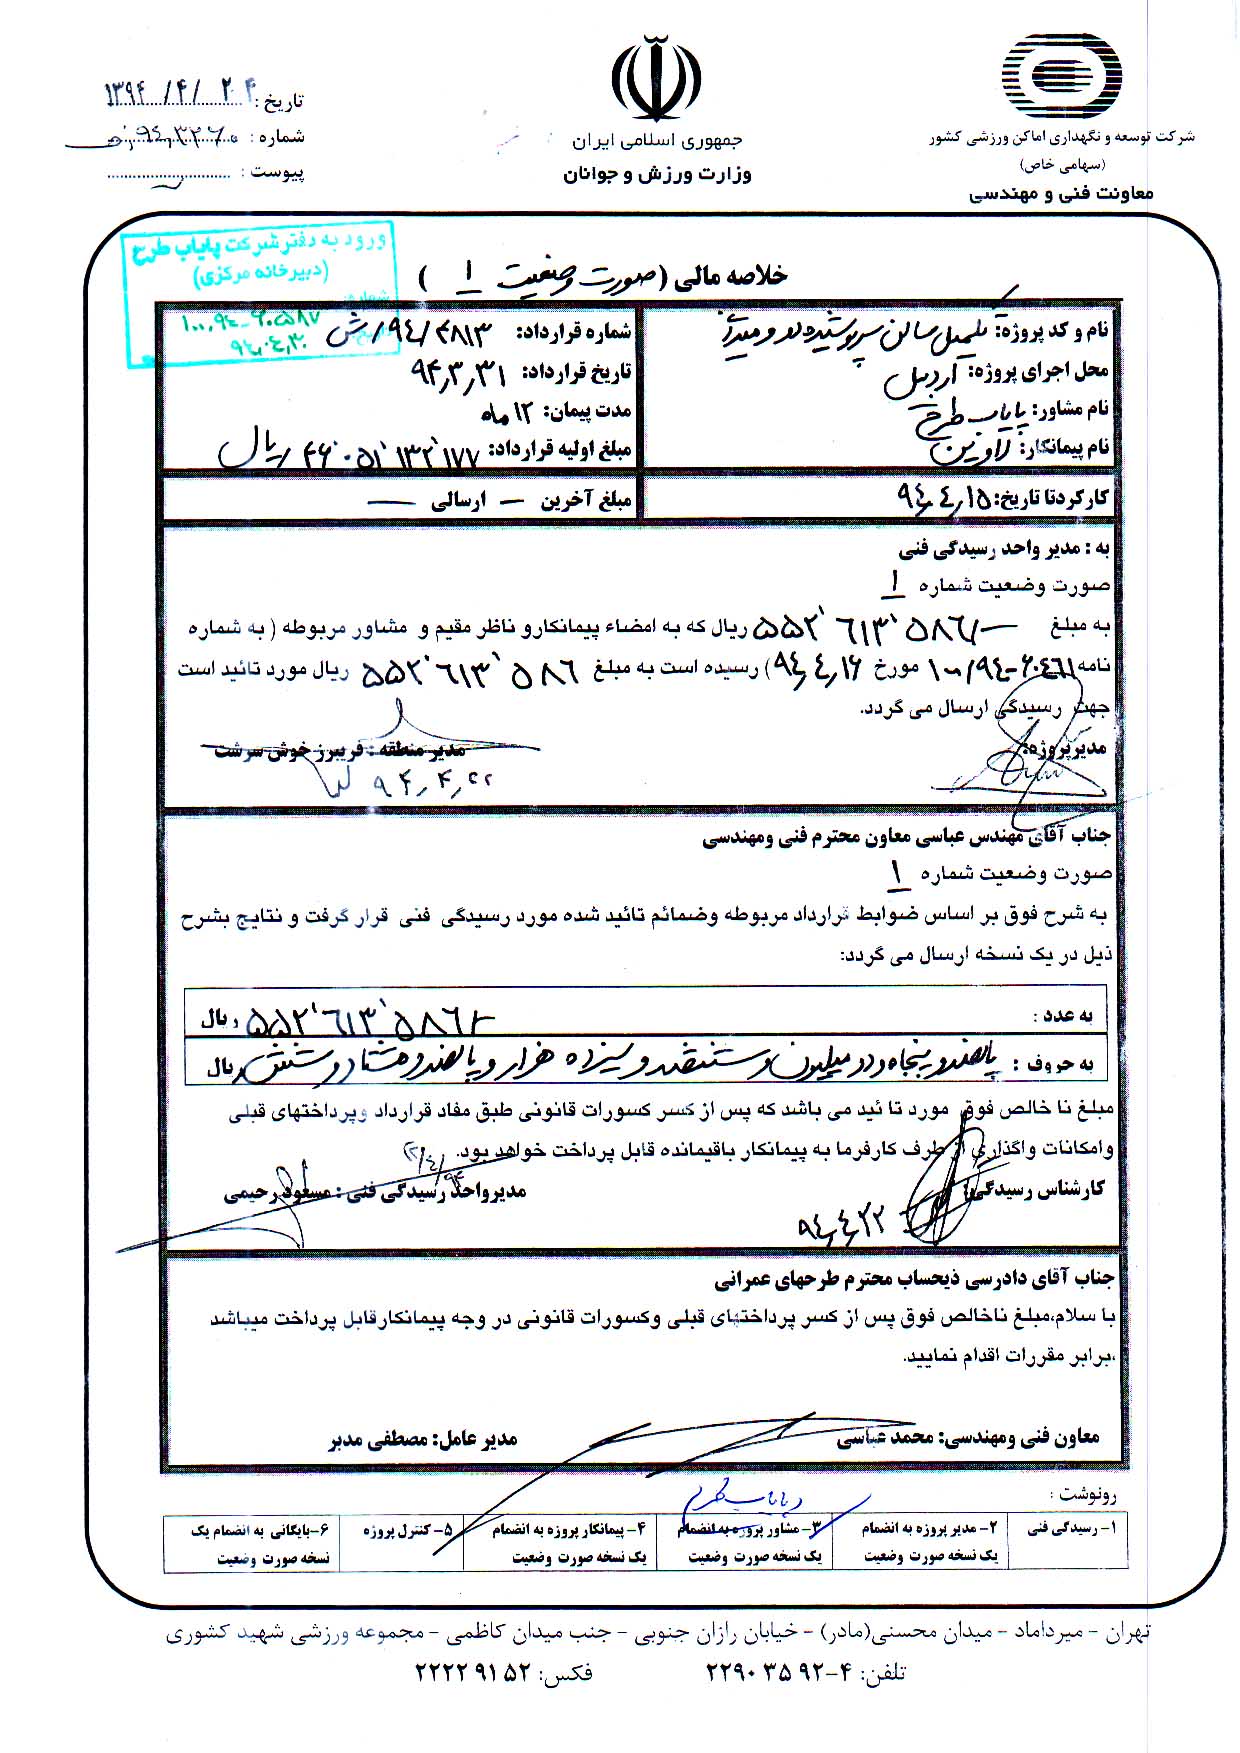 شرکت توسعه و نگهداری اماکن ورزشی کشور
(سهامی خاص)
معاونت فنی و مهندسی
جمهوری اسلامی ایران
وزارت ورزش و جوانان
تاریخ: ۱۳۹۴/۴/۲۴
شماره:
پیوست:
ورود به دفتر شرکت پایاب طرح
(دبیرخانه مرکزی)
۱۰۰,۹۴-۲۰۵۸۷
۹۴,۰۴,۳۰
خلاصه مالی (صورت وضعیت ۱)
نام و کد پروژه: تکمیل سالن سرپوشیده
محل اجرای پروژه: اردبیل
نام مشاور: پایاب طرح
نام پیمانکار: لاوین
شماره قرارداد: ۹۴/۴۸۱۳/ش
تاریخ قرارداد: ۹۴,۳,۳۱
مدت پیمان: ۱۲ ماه
مبلغ اولیه قرارداد: ۴۶,۰۵۱,۱۳۲,۱۷۷ ریال
کارکرد تا تاریخ: ۹۴,۴,۱۵
مبلغ آخرین — ارسالی —
به : مدیر واحد رسیدگی فنی
صورت وضعیت شماره ۱
به مبلغ ۵۵۲,۶۱۳,۵۸۶/- ریال که به امضاء پیمانکارو ناظر مقیم و مشاور مربوطه ( به شماره
نامه ۱۰۰/۹۴-۲۰۴۶۱ مورخ ۹۴,۴,۱۶) رسیده است به مبلغ ۵۵۲,۶۱۳,۵۸۶ ریال مورد تائید است
جهت رسیدگی ارسال می گردد.
مدیرپروژه:
مدیر منطقه : فریبرز خوش سرشت
۹۴,۴,۲۲
جناب آقای مهندس عباسی معاون محترم فنی ومهندسی
صورت وضعیت شماره ۱
به شرح فوق بر اساس ضوابط قرارداد مربوطه وضمائم تائید شده مورد رسیدگی فنی قرار گرفت و نتایج بشرح
ذیل در یک نسخه ارسال می گردد:
به عدد : ۵۵۲,۶۱۳,۵۸۶/- ریال
به حروف : پانصد و پنجاه و دو میلیون و ششصد و سیزده هزار و پانصد و هشتاد و شش ریال
مبلغ نا خالص فوق مورد تا ئید می باشد که پس از کسر کسورات قانونی طبق مفاد قرارداد وپرداختهای قبلی
وامکانات واگذاری از طرف کارفرما به پیمانکار باقیمانده قابل پرداخت خواهد بود.
کارشناس رسیدگی:
۹۴,۴,۲۲
مدیرواحد رسیدگی فنی : مسعود رحیمی
جناب آقای دادرسی ذیحساب محترم طرحهای عمرانی
با سلام،مبلغ ناخالص فوق پس از کسر پرداختهای قبلی وکسورات قانونی در وجه پیمانکارقابل پرداخت میباشد
،برابر مقررات اقدام نمایید.
معاون فنی ومهندسی: محمد عباسی
مدیر عامل: مصطفی مدبر
رونوشت :
پایاب طرح
۱- رسیدگی فنی
۲- مدیر پروژه به انضمام یک نسخه صورت وضعیت
۳- مشاور پروژه به انضمام یک نسخه صورت وضعیت
۴- پیمانکار پروژه به انضمام یک نسخه صورت وضعیت
۵- کنترل پروژه
۶-بایگانی به انضمام یک نسخه صورت وضعیت
تهران - میرداماد - میدان محسنی(مادر) - خیابان رازان جنوبی - جنب میدان کاظمی - مجموعه ورزشی شهید کشوری
تلفن: ۴-۲۲۹۰۳۵۹۲ فکس: ۲۲۲۲۹۱۵۲